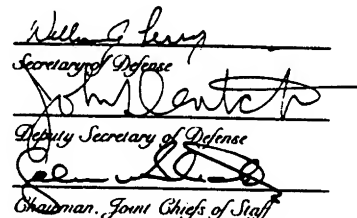 William J. Perry
Secretary of Defense
John Deutch
Deputy Secretary of Defense
John Shalikashvili
Chairman, Joint Chiefs of Staff